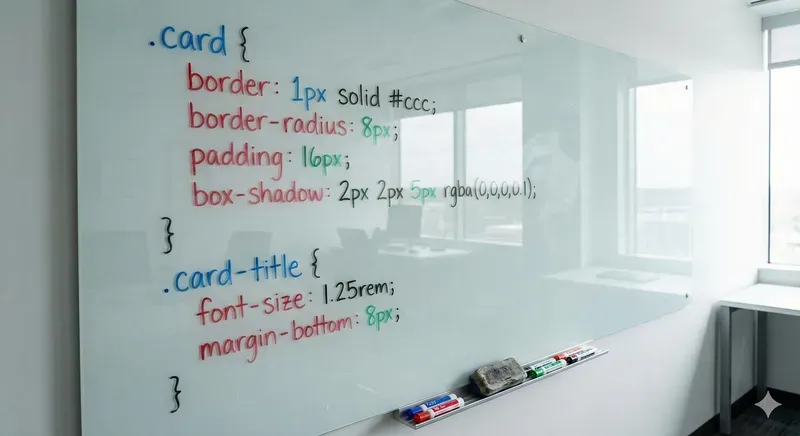 .card {
border: 1px solid #ccc;
border-radius: 8px;
padding: 16px;
box-shadow: 2px 2px 5px rgba(0,0,0,0.1);
}
.card-title {
font-size: 1.25rem;
margin-bottom: 8px;
}